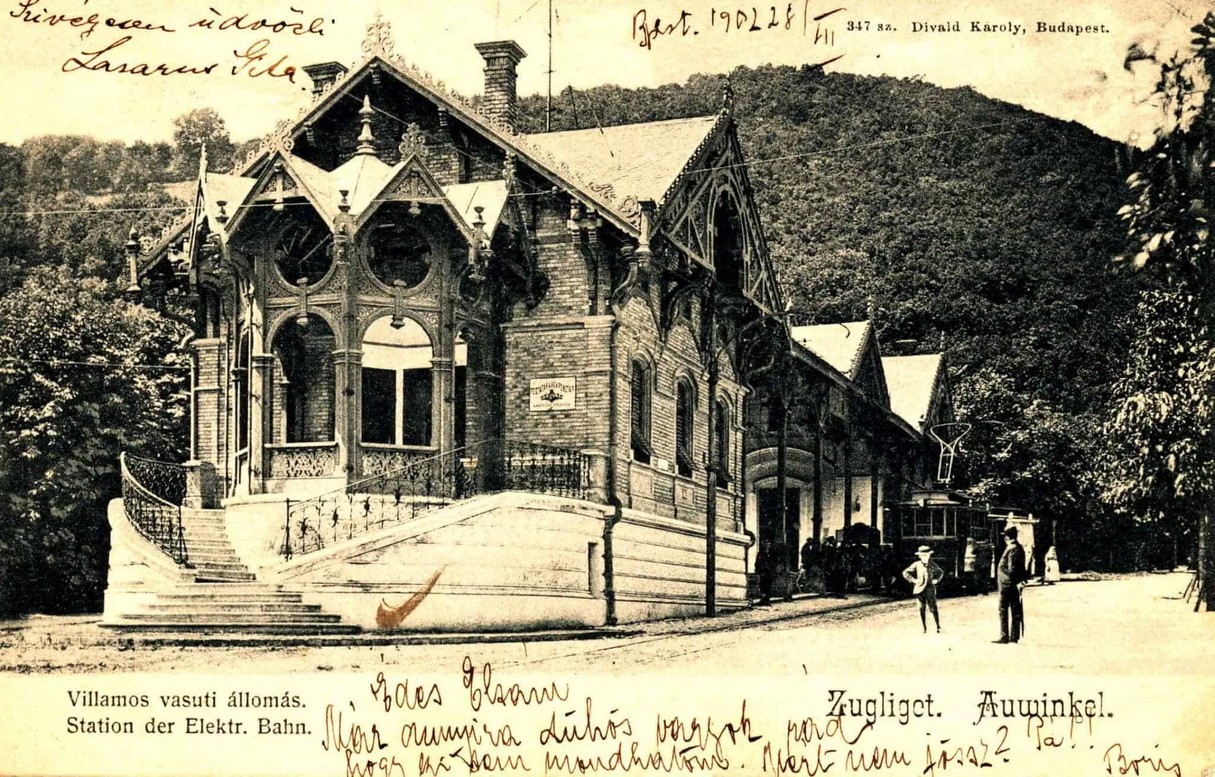 Szivélyesen üdvözli
Lasarus Gita
Bpst. 1902 28/III
347 sz. Divald Károly, Budapest.
Villamos vasuti állomás.
Station der Elektr. Bahn.
Zugliget. Auwinkel.
Édes Elsam
Már annyira dühös vagyok rád
hogy ki sem mondhatom. Mért nem jössz? Pá!!
Boris